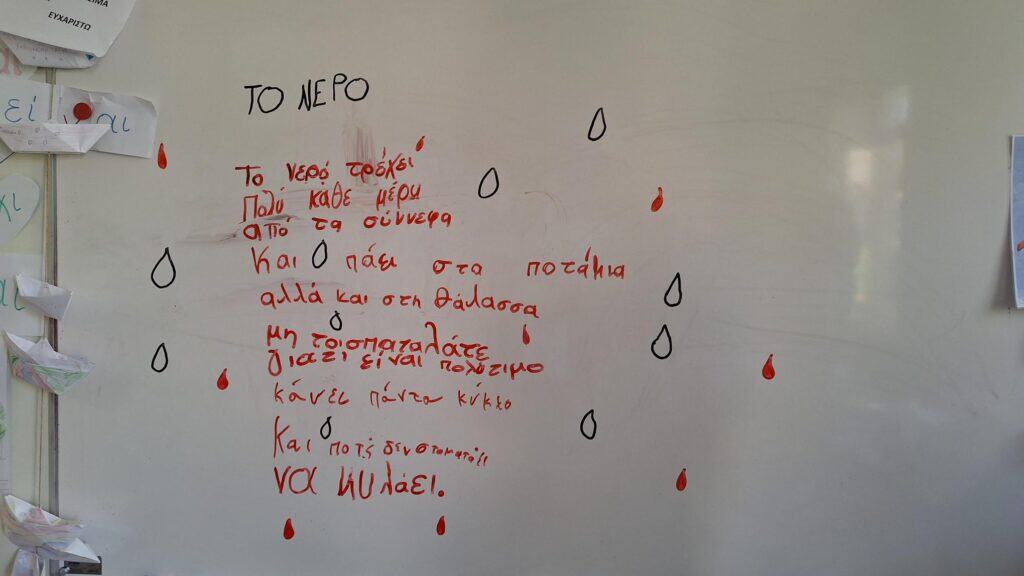 ΣΙΜΑ
ΕΥΧΑΡΙΣΤΩ
εί ναι
χι
αι
ΤΟ ΝΕΡΟ
Το νερό τρέχει
Πολύ κάθε μέρα
από τα σύννεφα
Και πάει στα ποτάμια
αλλά και στη θάλασσα
μη το σπαταλάτε
γιατί είναι πολύτιμο
κάνει πάντα κύκλο
Και ποτέ δεν σταματάει
να κυλάει.